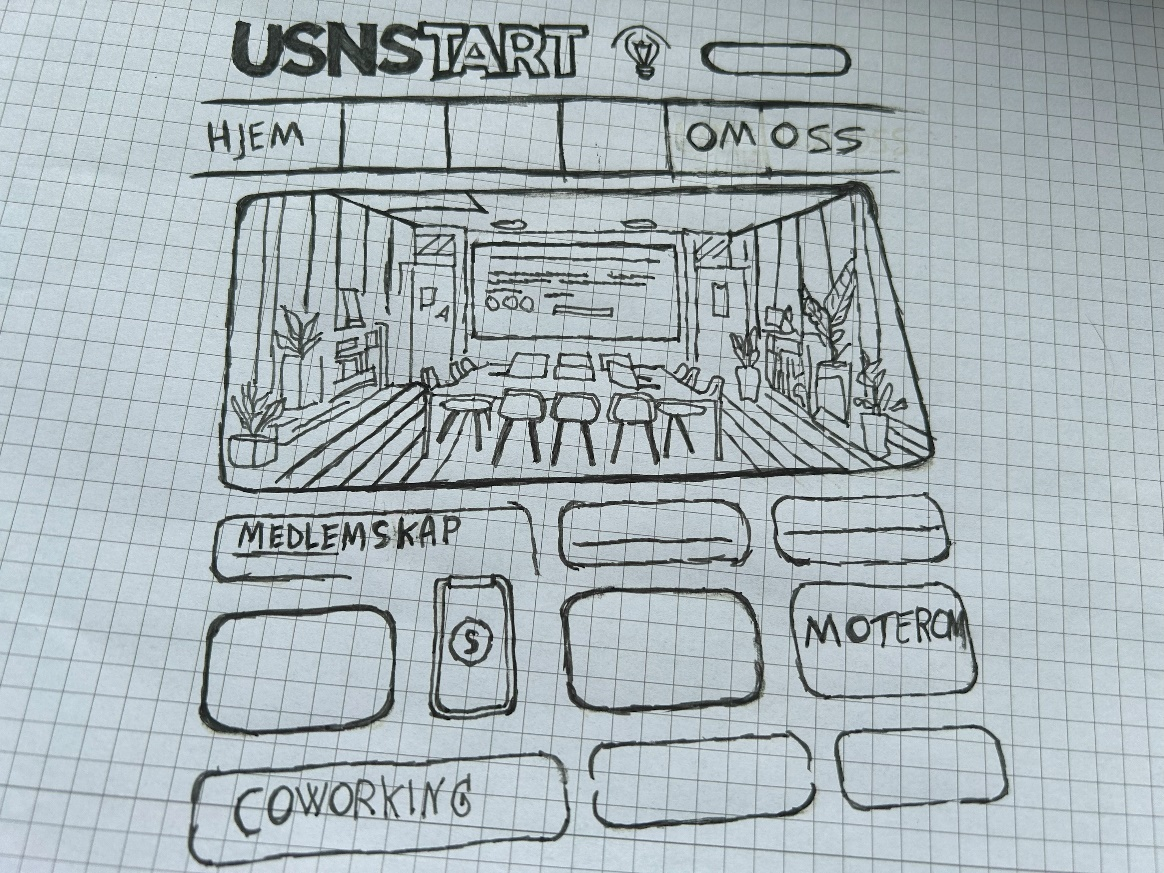 USNSTART
HJEM OM OSS
MEDLEMSKAP
$
MOTEROM
COWORKING